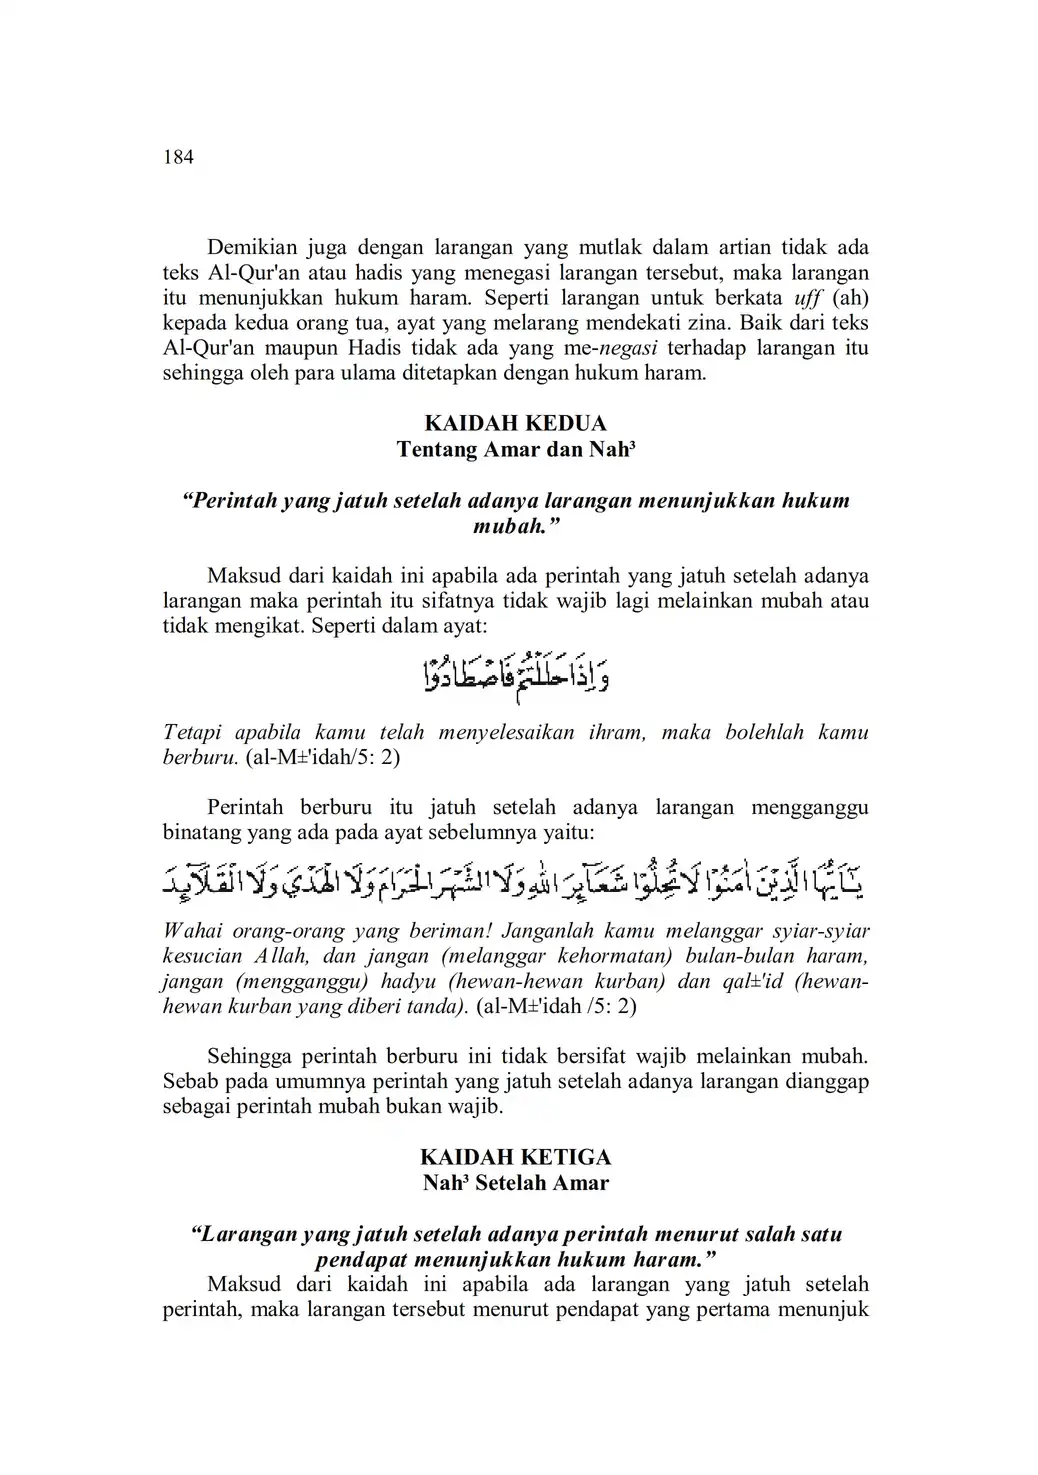 184
Demikian juga dengan larangan yang mutlak dalam artian tidak ada
teks Al-Qur'an atau hadis yang menegasi larangan tersebut, maka larangan
itu menunjukkan hukum haram. Seperti larangan untuk berkata uff (ah)
kepada kedua orang tua, ayat yang melarang mendekati zina. Baik dari teks
Al-Qur'an maupun Hadis tidak ada yang me-negasi terhadap larangan itu
sehingga oleh para ulama ditetapkan dengan hukum haram.
KAIDAH KEDUA
Tentang Amar dan Nah³
“Perintah yang jatuh setelah adanya larangan menunjukkan hukum
mubah.”
Maksud dari kaidah ini apabila ada perintah yang jatuh setelah adanya
larangan maka perintah itu sifatnya tidak wajib lagi melainkan mubah atau
tidak mengikat. Seperti dalam ayat:
وَاِذَا حَلَلْتُمْ فَاصْطَادُوْا
Tetapi apabila kamu telah menyelesaikan ihram, maka bolehlah kamu
berburu. (al-M±'idah/5: 2)
Perintah berburu itu jatuh setelah adanya larangan mengganggu
binatang yang ada pada ayat sebelumnya yaitu:
يٰٓاَيُّهَا الَّذِيْنَ اٰمَنُوْا لَا تُحِلُّوْا شَعَاۤىِٕرَ اللّٰهِ وَلَا الشَّهْرَ الْحَرَامَ وَلَا الْهَدْيَ وَلَا الْقَلَاۤىِٕدَ
Wahai orang-orang yang beriman! Janganlah kamu melanggar syiar-syiar
kesucian Allah, dan jangan (melanggar kehormatan) bulan-bulan haram,
jangan (mengganggu) hadyu (hewan-hewan kurban) dan qal±'id (hewan-
hewan kurban yang diberi tanda). (al-M±'idah /5: 2)
Sehingga perintah berburu ini tidak bersifat wajib melainkan mubah.
Sebab pada umumnya perintah yang jatuh setelah adanya larangan dianggap
sebagai perintah mubah bukan wajib.
KAIDAH KETIGA
Nah³ Setelah Amar
“Larangan yang jatuh setelah adanya perintah menurut salah satu
pendapat menunjukkan hukum haram.”
Maksud dari kaidah ini apabila ada larangan yang jatuh setelah
perintah, maka larangan tersebut menurut pendapat yang pertama menunjuk